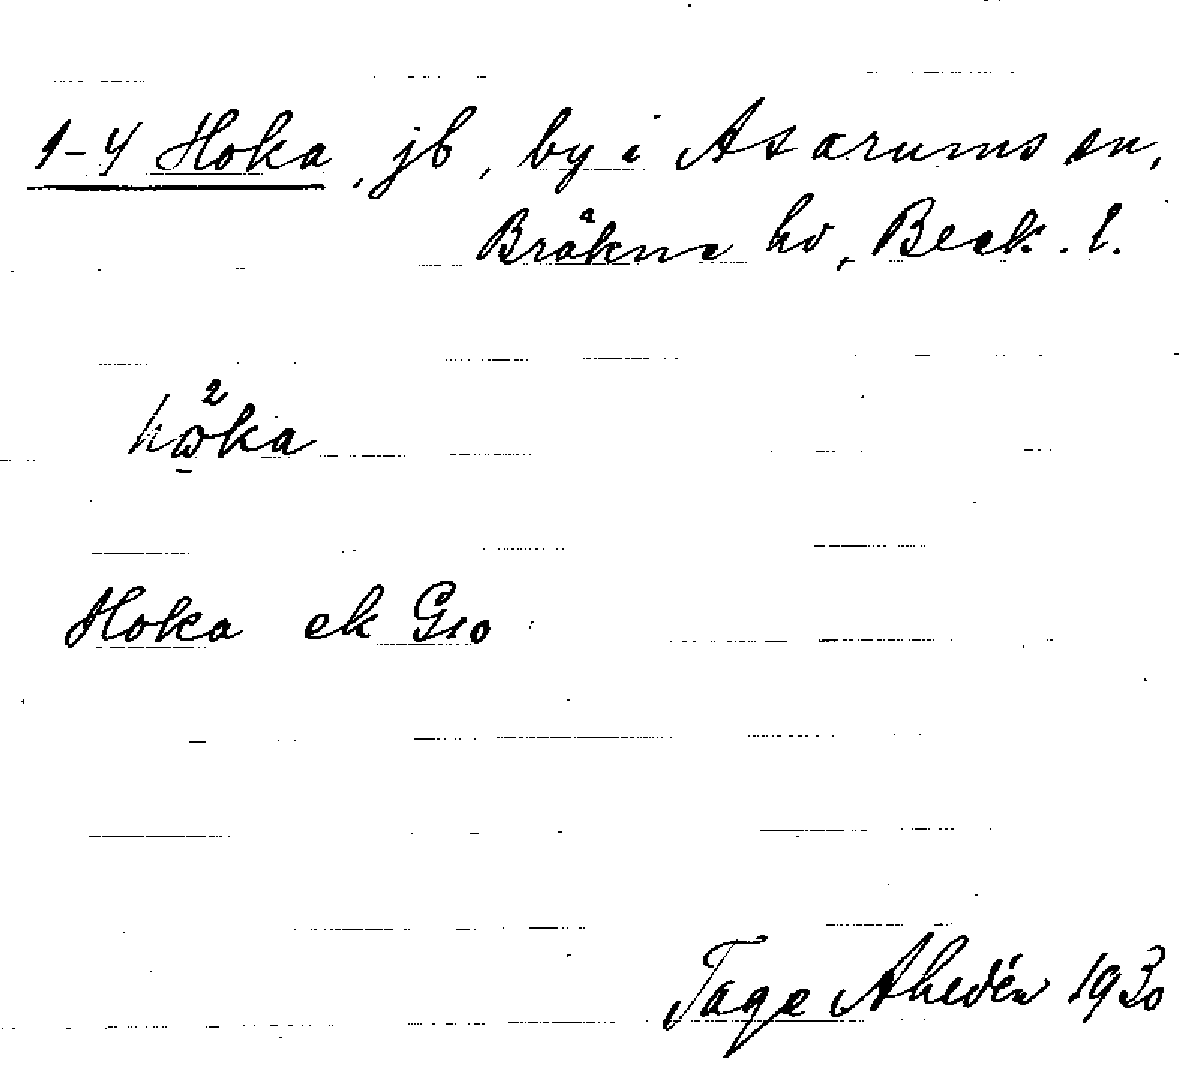 1-4 Hoka, jb, by i Asarums sn,
Bräkne hd, Bleck. l.
hωka
Hoka ek G10
Tage Ahldén 1930